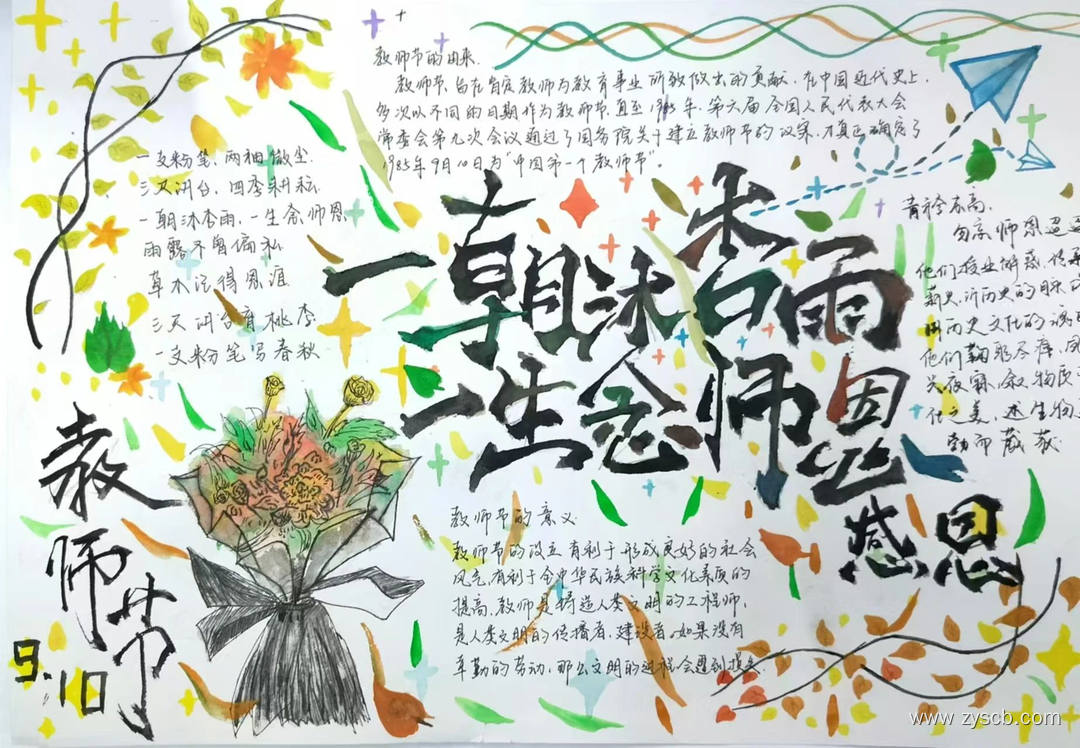 教师节的由来.
教师节,旨在肯定教师为教育事业所做出的贡献.在中国近代史上,
多次以不同的日期作为教师节.直至1985年,第六届全国人民代表大会
常委会第九次会议通过了国务院关于建立教师节的议案,才真正确定了
1985年9月10日为“中国第一个教师节”。
一支粉笔,两袖微尘.
三尺讲台,四季耕耘.
一朝沐杏雨,一生念师恩
雨露不曾偏私
草木沅得恩涯
三尺讲台育桃李
一支粉笔写春秋
一朝沐杏雨
一生念师恩
感恩
青衿志高.
勿忘师恩迢迢
他们授业解惑,传承
薪火,
历史文化的
他们鞠躬尽瘁,夙
兴夜寐,叙物质
化之美,述生物
勤而
教师节
9.10
教师节的意义
教师节的设立有利于形成良好的社会
风气.有利于全中华民族科学文化素质的
提高.教师是铸造人类文明的工程师,
是人类文明的传播者,建设者。如果没有
辛勤的劳动,那么文明的进程会遭到损失.
www.zyscb.com